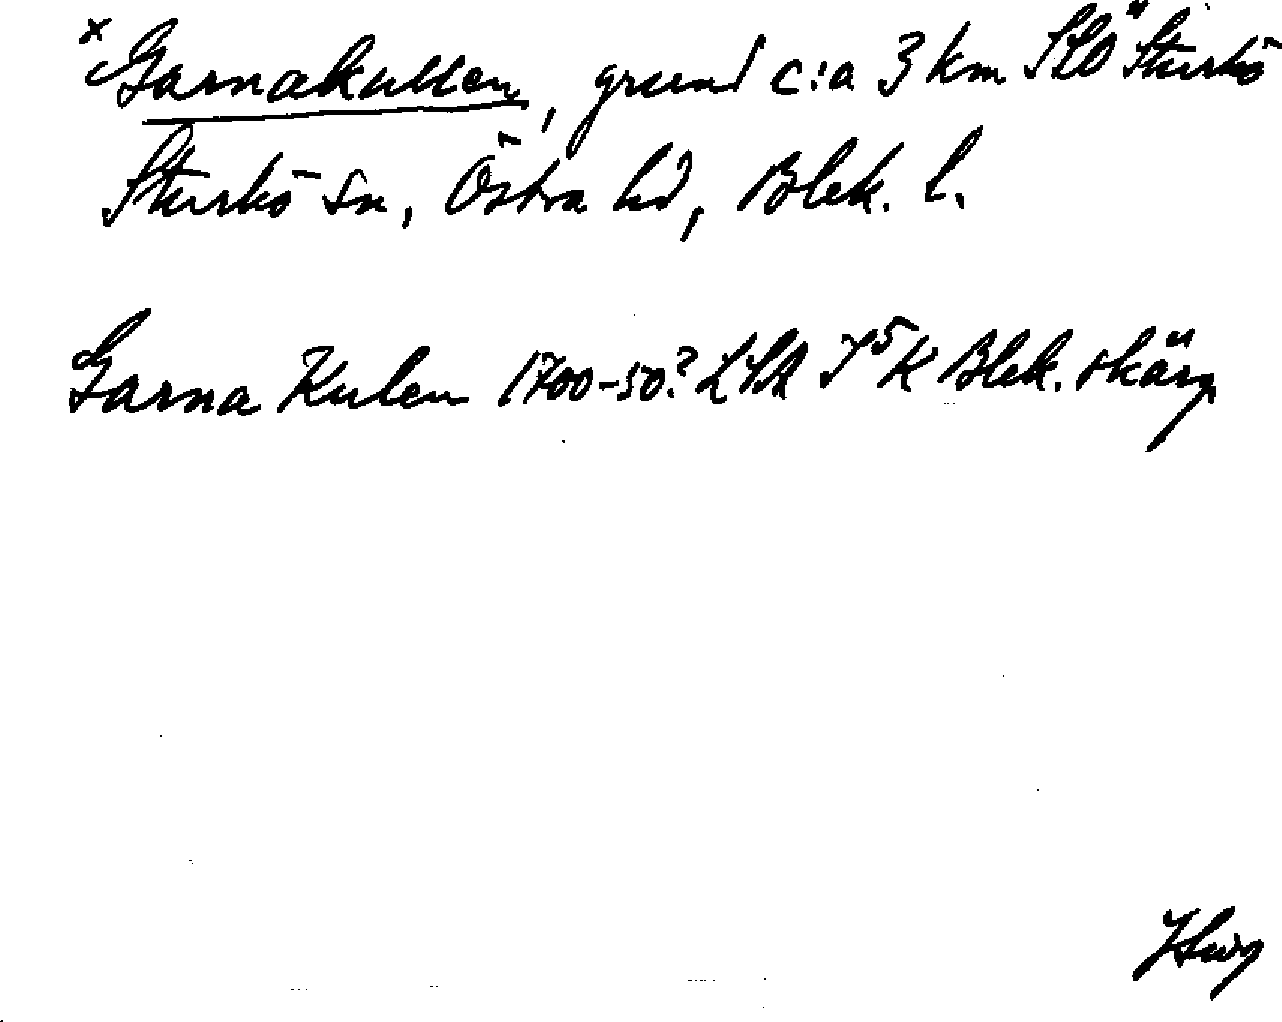 x Garnakullen, grund c:a 3 km SSO Sturkö
Sturkö sn, Östra hd, Blek. l.
Garna Kulen 1700-50? LSA K Blek. skärg